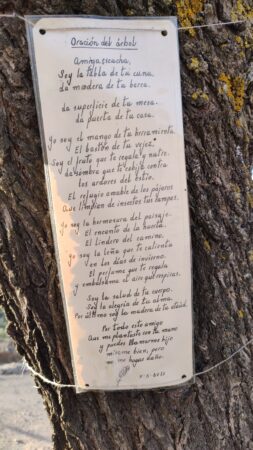 Oración del árbol
Amigo, escucha,
Soy la tabla de tu cuna,
La madera de tu barca.
La superficie de tu mesa.
La puerta de tu casa.
Yo soy el mango de tu herramienta,
El bastón de tu vejez.
Soy el fruto que te regala y nutre.
La sombra que te cobija contra
los ardores del estío.
El refugio amable de los pájaros
Que limpian de insectos tus campos.
Yo soy la hermosura del paisaje.
El encanto de la huerta.
El lindero del camino.
Yo soy la leña que te calienta
en los días de invierno.
El perfume que te regala
y embalsama el aire que respiras.
Soy la salud de tu cuerpo.
Soy la alegría de tu alma.
Por último soy la madera de tu ataúd.
Por todo esto amigo
Que me plantaste con tu mano
y puedes llamarme hijo
mírame bien, pero
no me hagas daño.